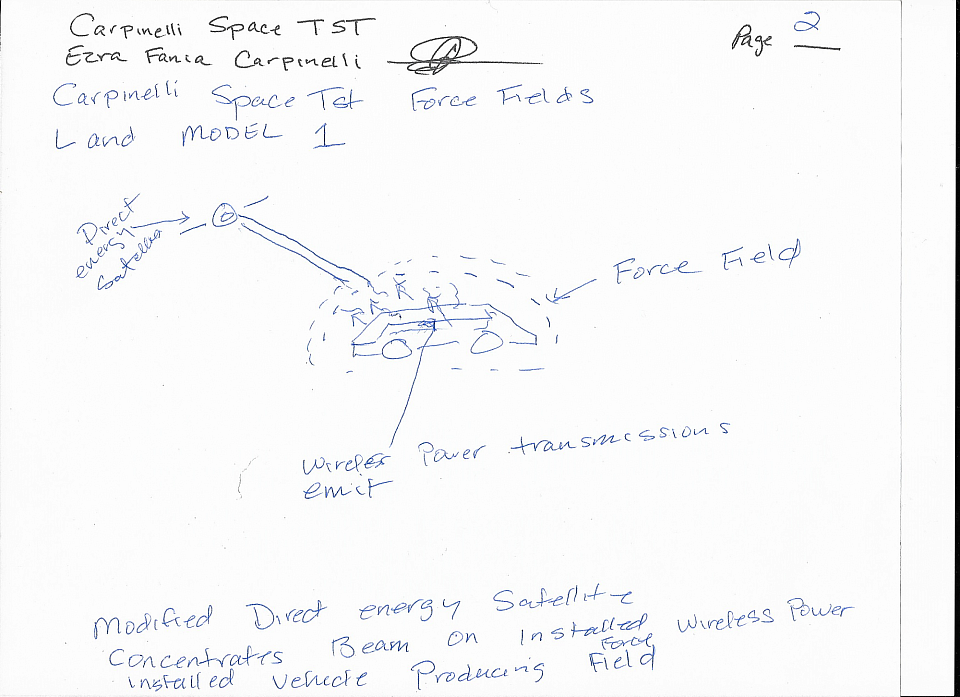 Carpinelli Space TST
Page 2
Ezra Fania Carpinelli
Carpinelli Space Tst Force Fields
Land MODEL 1
Direct
energy
Satellite
Force Field
Wireless Power transmissions
emit
Modified Direct energy Satellite
Concentrates Beam on Installed Wireless Power
installed vehicle Producing Force Field